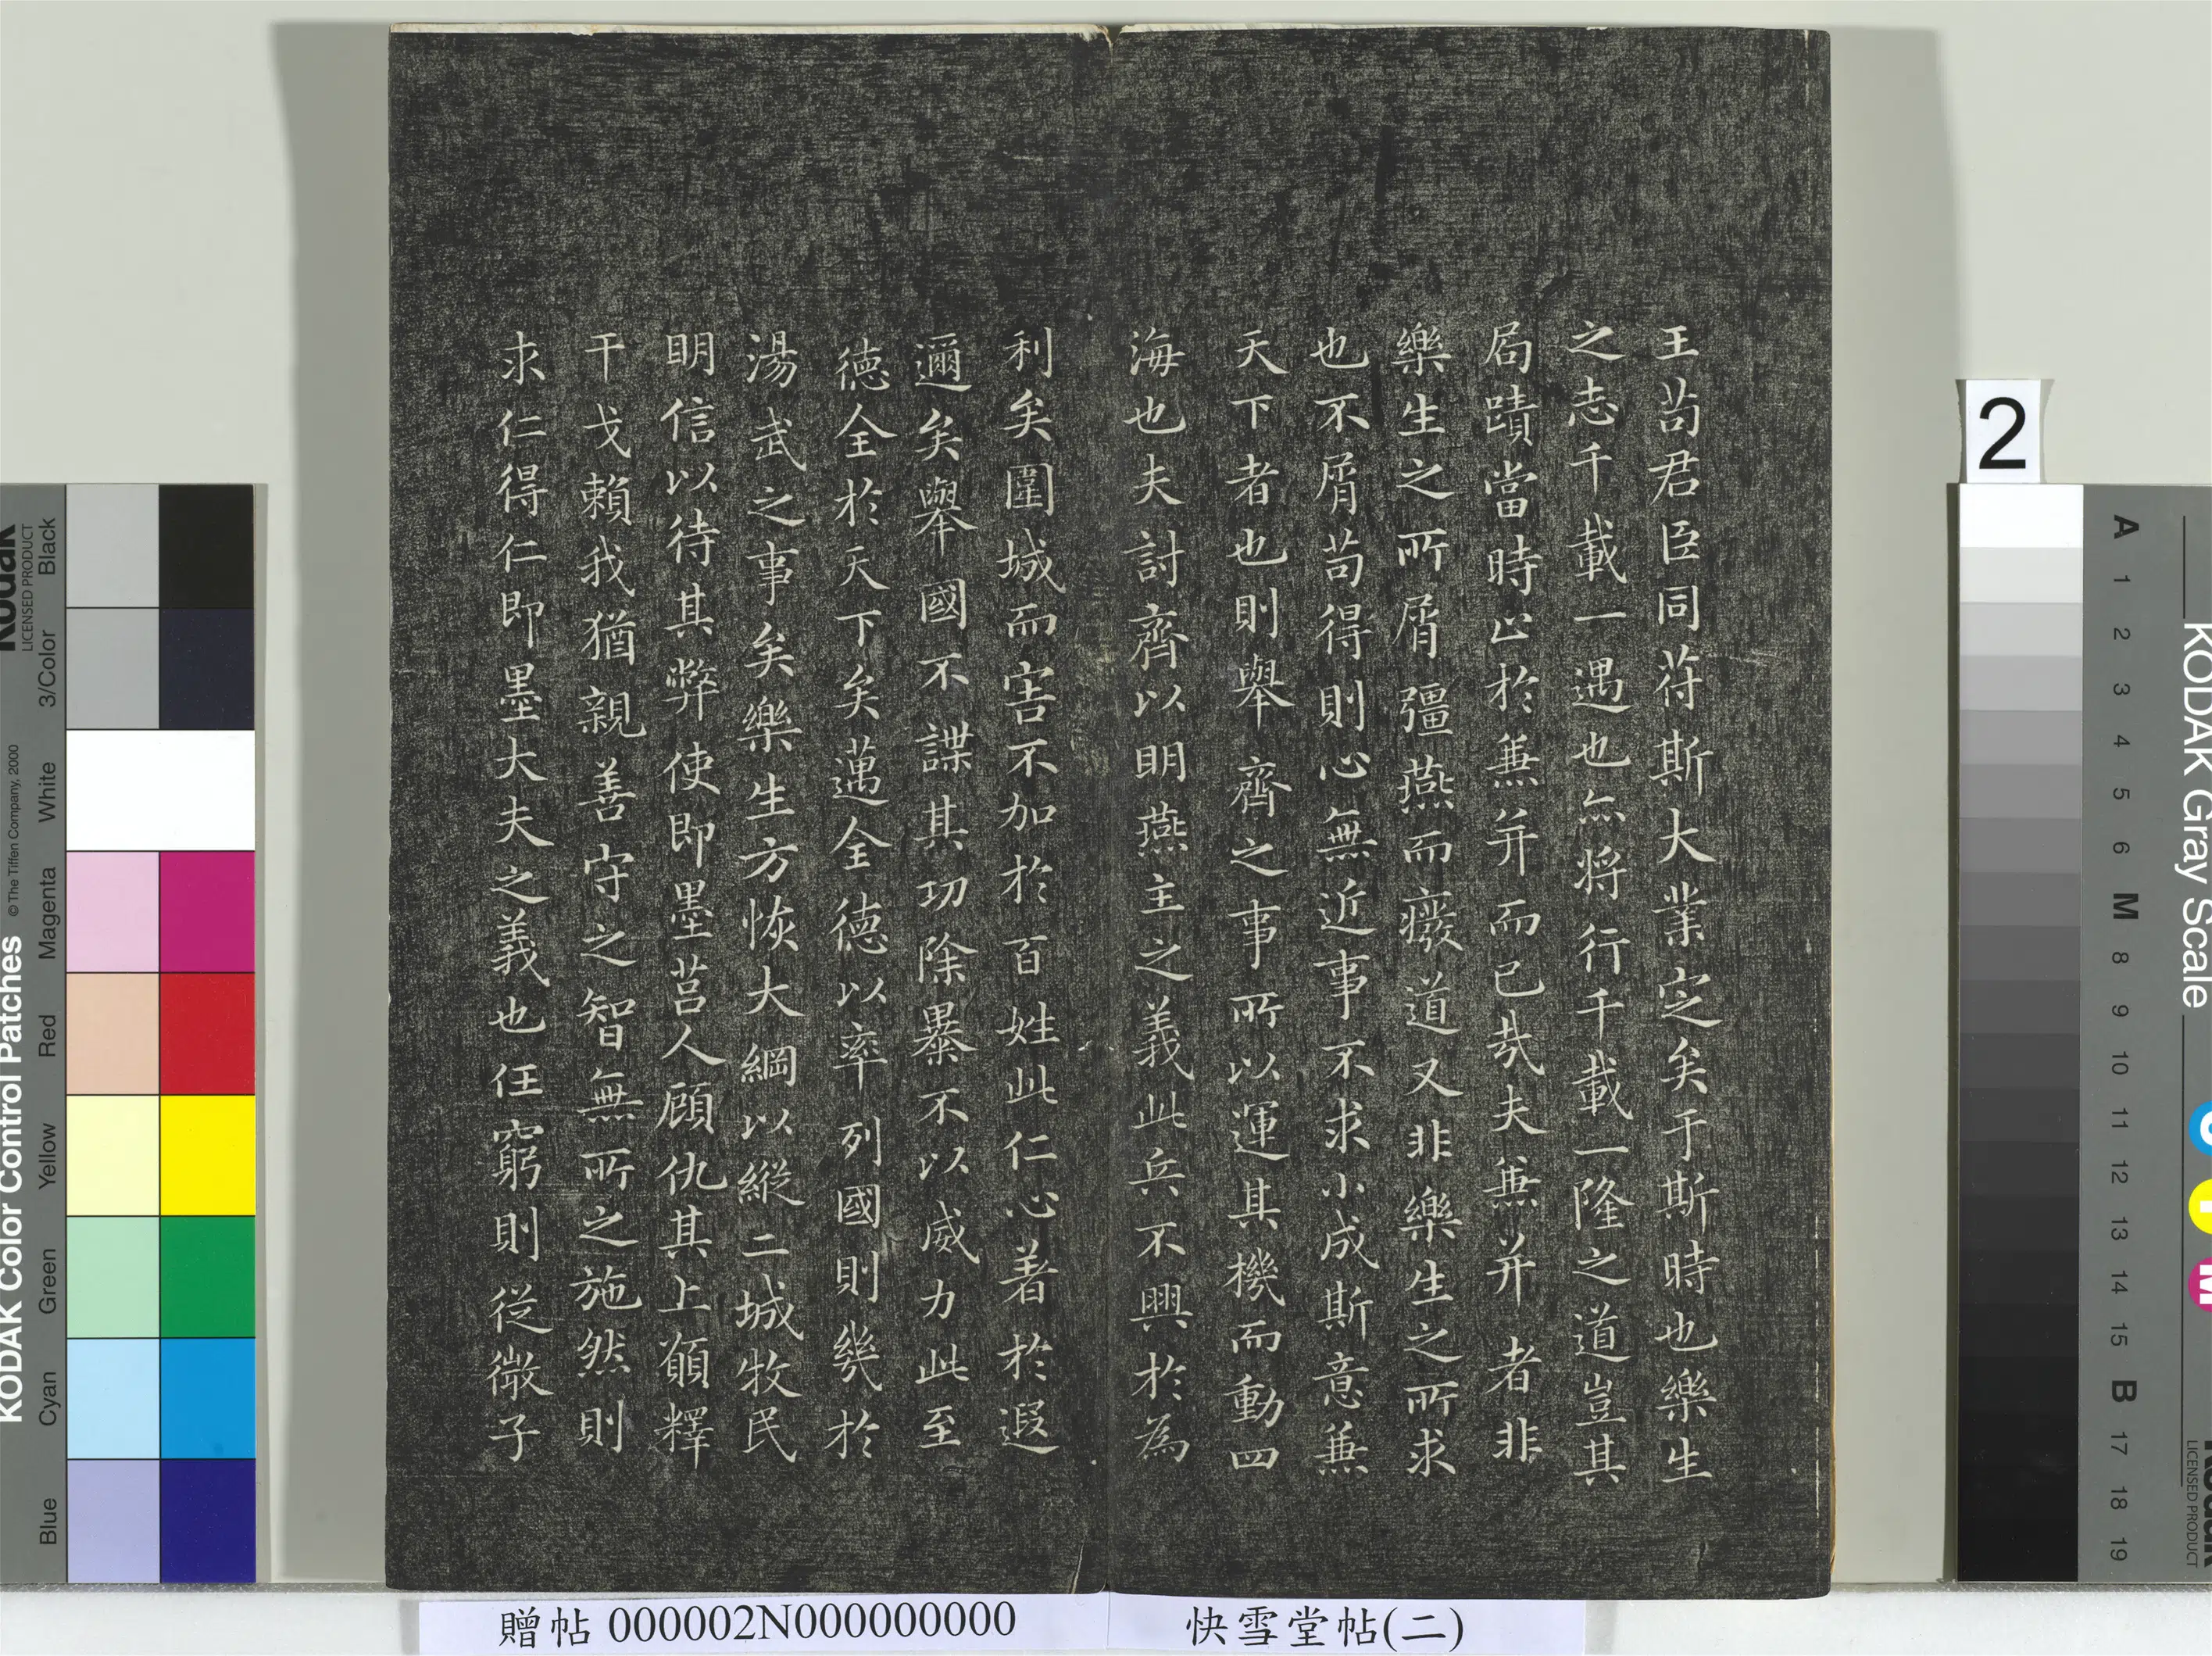 王苟君臣同苻斯大業定矣于斯時也樂生
之志千載一遇也亦將行千載一隆之道豈其
局蹟當時止於兼并而已哉夫兼并者非
樂生之所屑彊燕而癈道又非樂生之所求
也不屑苟得則心無近事不求小成斯意兼
天下者也則舉齊之事所以運其機而動四
海也夫討齊以明燕主之義此兵不興於為
利矣圍城而害不加於百姓此仁心著於遐
邇矣舉國不謀其功除暴不以威力此至
德全於天下矣邁全德以率列國則幾於
湯武之事矣樂生方恢大綱以縱二城牧民
明信以待其弊使即墨莒人顧仇其上願釋
干戈賴我猶親善守之智無所之施然則
求仁得仁即墨大夫之義也任窮則從微子
贈帖 000002N000000000
快雪堂帖(二)
2
KODAK Color Control Patches
© The Tiffen Company, 2000
Kodak
LICENSED PRODUCT
Black
3/Color
White
Magenta
Red
Yellow
Green
Cyan
Blue
KODAK Gray Scale
A 1 2 3 4 5 6 M 8 9 10 11 12 13 14 15 B 17 18 19
C
Y
M
Kodak
LICENSED PRODUCT